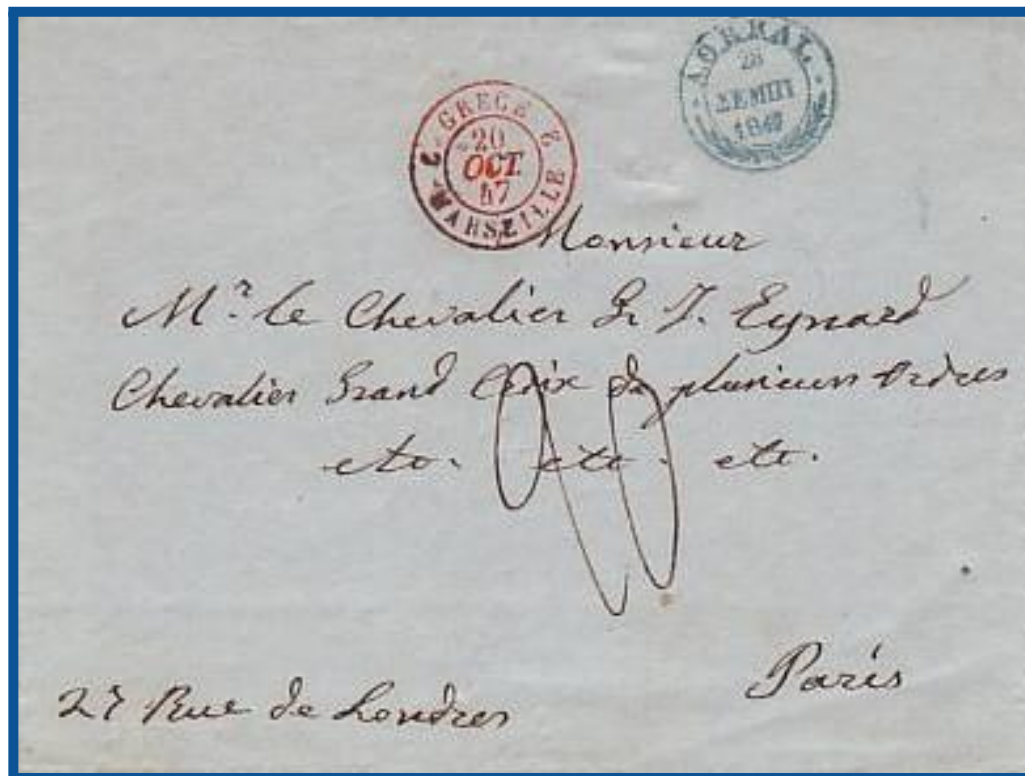 GRECE 2
20
OCT.
47
2 MARSEILLE
28
ΣΕΠΤ
1847
Monsieur
Mr. le Chevalier J. Eynard
Chevalier Grand Croix de plusieurs Ordres
etc. etc. etc.
Paris
27 Rue de Londres